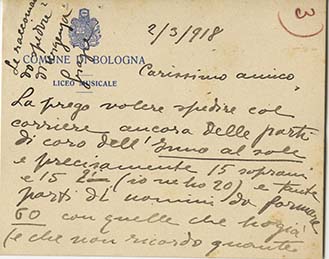 Le raccoman
do spedire
di urgenza
Grazie
3
COMUNE DI BOLOGNA
LICEO MUSICALE
2/3/918
Carissimo amico,
La prego volere spedire col
corriere ancora delle parti
di coro dell'Inno al sole
e precisamente 15 soprani
e 15 2i (io ne ho 20) e tante
parti di uomini da formare
60 con quelle che ho già
(e che non ricordo quante